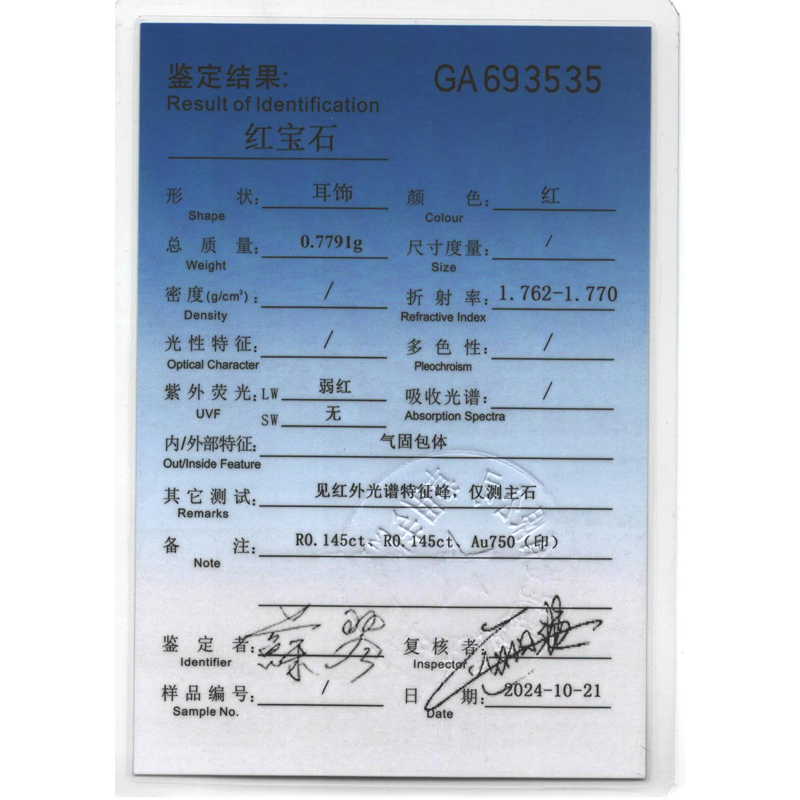 鉴定结果: GA693535
Result of Identification
红宝石
形 状: 耳饰 颜 色: 红
Shape Colour
总 质 量: 0.7791g 尺寸度量: /
Weight Size
密度(g/cm³): / 折 射 率: 1.762-1.770
Density Refractive Index
光性特征: / 多 色 性: /
Optical Character Pleochroism
紫外荧光: LW 弱红 吸收光谱: /
UVF SW 无 Absorption Spectra
内/外部特征: 气固包体
Out/Inside Feature
其它测试: 见红外光谱特征峰，仅测主石
Remarks
备 注: R0.145ct、R0.145ct、Au750（印）
Note
鉴 定 者: 复 核 者:
Identifier Inspector
样品编号: / 日 期: 2024-10-21
Sample No. Date